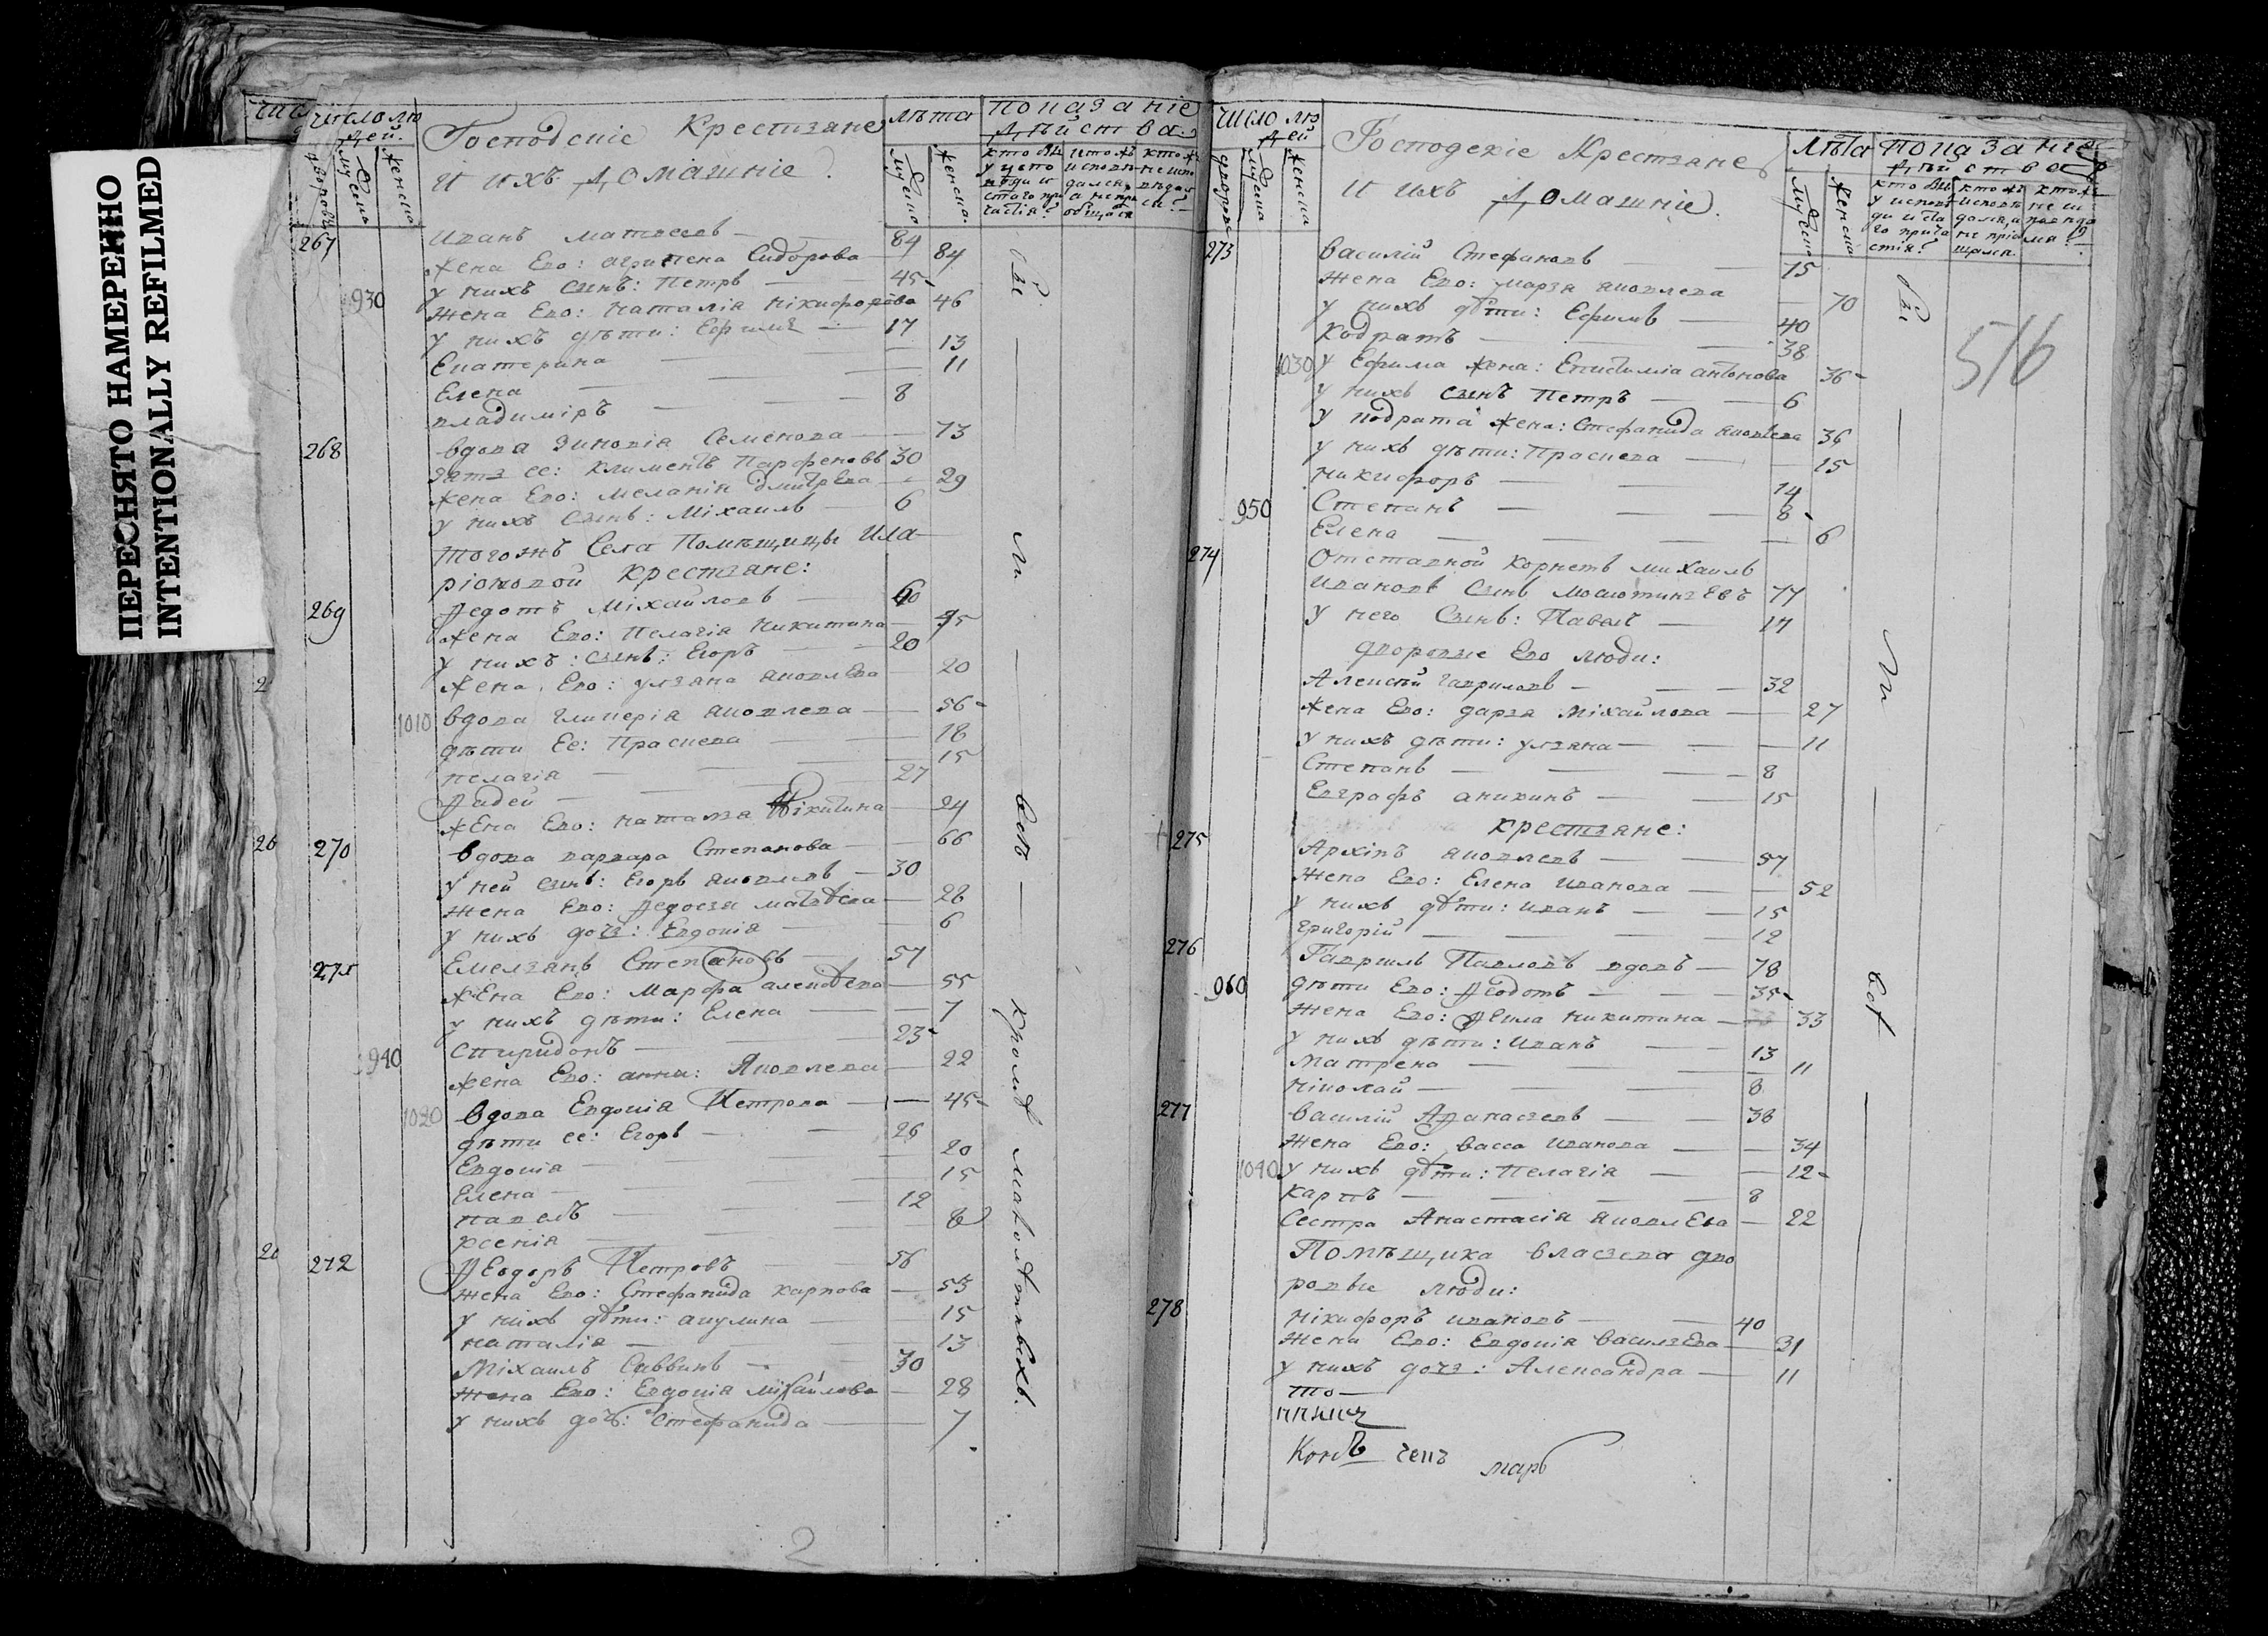 ПЕРЕСНЯТО НАМЕРЕННО
INTENTIONALLY REFILMED
Число людей
дворовъ
мужеска
женска
Господскіе Крестьяне
и ихъ домашніе
лѣта
мужеска
женска
Показаніе
дѣйства
267 Иванъ Матвеевъ 84
Жена Ево: Агрипена Сидорова 84
У нихъ сынъ: Петръ 45
930 Жена Ево: Наталія Никифорова 46
У нихъ дѣти: Ефимъ 17
Екатерина 13
Елена 11
Владимиръ 8
268 Вдова Зиновія Семенова 73
Зять ее: Климентъ Парфеновъ 30
Жена Ево: Меланія Дмитрева 29
У нихъ сынъ: Міхаилъ 6
Тогожъ Села Помѣщицы Ила
ріоновой крестьяне:
269 Федотъ Міхайловъ
Жена Ево: Пелагія Никитина 45
У нихъ: сынъ: Егоръ 20
Жена Ево: Ульяна Яковлева 20
1010 Вдова Гликерія Яковлева 56
Дѣти Ее: Прасковa 18
Пелагія 15
Фадей 27
Жена Ево: Наталья Нікитина 24
270 Вдова Варвара Степанова 66
У ней сынъ: Егоръ Яковлевъ 30
Жена Ево: Федосья Матвѣева 28
У нихъ дочь: Евдокія 6
271 Емельянъ Степановъ 57
Жена Ево: Марфа Алексѣева 55
У нихъ дѣти: Елена 7
Спиридонъ 23
940 Жена Ево: Анна: Яковлева 22
1020 Вдова Евдокія Петрова 45
Дѣти ее: Егоръ 26
Евдокія 20
Елена 15
Павелъ 12
Ксенія
272 Феодоръ Петровъ 56
Жена Ево: Стефанида Карпова 53
У нихъ дѣти: Акулина 15
Наталія 13
Міхаилъ Саввинъ 30
Жена Ево: Евдокія Міхайлова 28
У нихъ дочь: Стефанида 7
Были Всѣ кромѣ малолѣтнихъ.
2
Число людей
дворовъ
мужеска
женска
Господскіе Крестьяне
и ихъ домашніе
Лѣта
мужеска
женска
Показаніе
дѣйства
516
273 Василій Стефановъ 75
Жена Ево: Марья Яковлева 70
У нихъ дѣти: Ефимъ 40
Кодратъ 38
1030 У Ефима жена: Епистимія Антонова 36
У нихъ сынъ Петръ 6
У Кодрата жена: Стефанида Яковлева 36
У нихъ дѣти: Прасковa 15
Никифоръ 14
950 Степанъ 8
Елена 6
274 Отставной корнетъ Михаилъ
Ивановъ сынъ 77
У него Сынъ: Павелъ 17
дворовые Ево люди:
Алексѣй Гавриловъ 32
Жена Ево: Дарья Міхайлова 27
У нихъ дѣти: Ульяна 11
Степанъ 8
Евграфъ Аникинъ 15
крестьяне:
275 Архіпъ Яковлевъ 57
Жена Ево: Елена Иванова 52
У нихъ дѣти: Иванъ 15
Григорій 12
276 Гаврилъ Павловъ вдовъ 78
960 Дѣти Ево: Федотъ 35
Жена Ево: Фекла Никитина 33
У нихъ дѣти: Иванъ 13
Матрена 11
Ніколай 8
277 Василій Афанасьевъ 38
Жена Ево: Васса Иванова 34
1040 У нихъ дѣти: Пелагія 12
Карпъ 8
Сестра Анастасія Яковлева 22
Помѣщика Власьева дво
ровые люди:
278 Нікифоръ Ивановъ 40
Жена Ево: Евдокія Васильева 31
У нихъ дочь: Александра 11
Были Всѣ